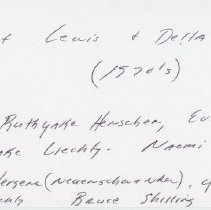 + Lewis + Della
(1970's)
Ruthynke Henschen, Eu
ke Liechty - Naomi
Vergene (Neuenschwander),
chty Bruce Shilling